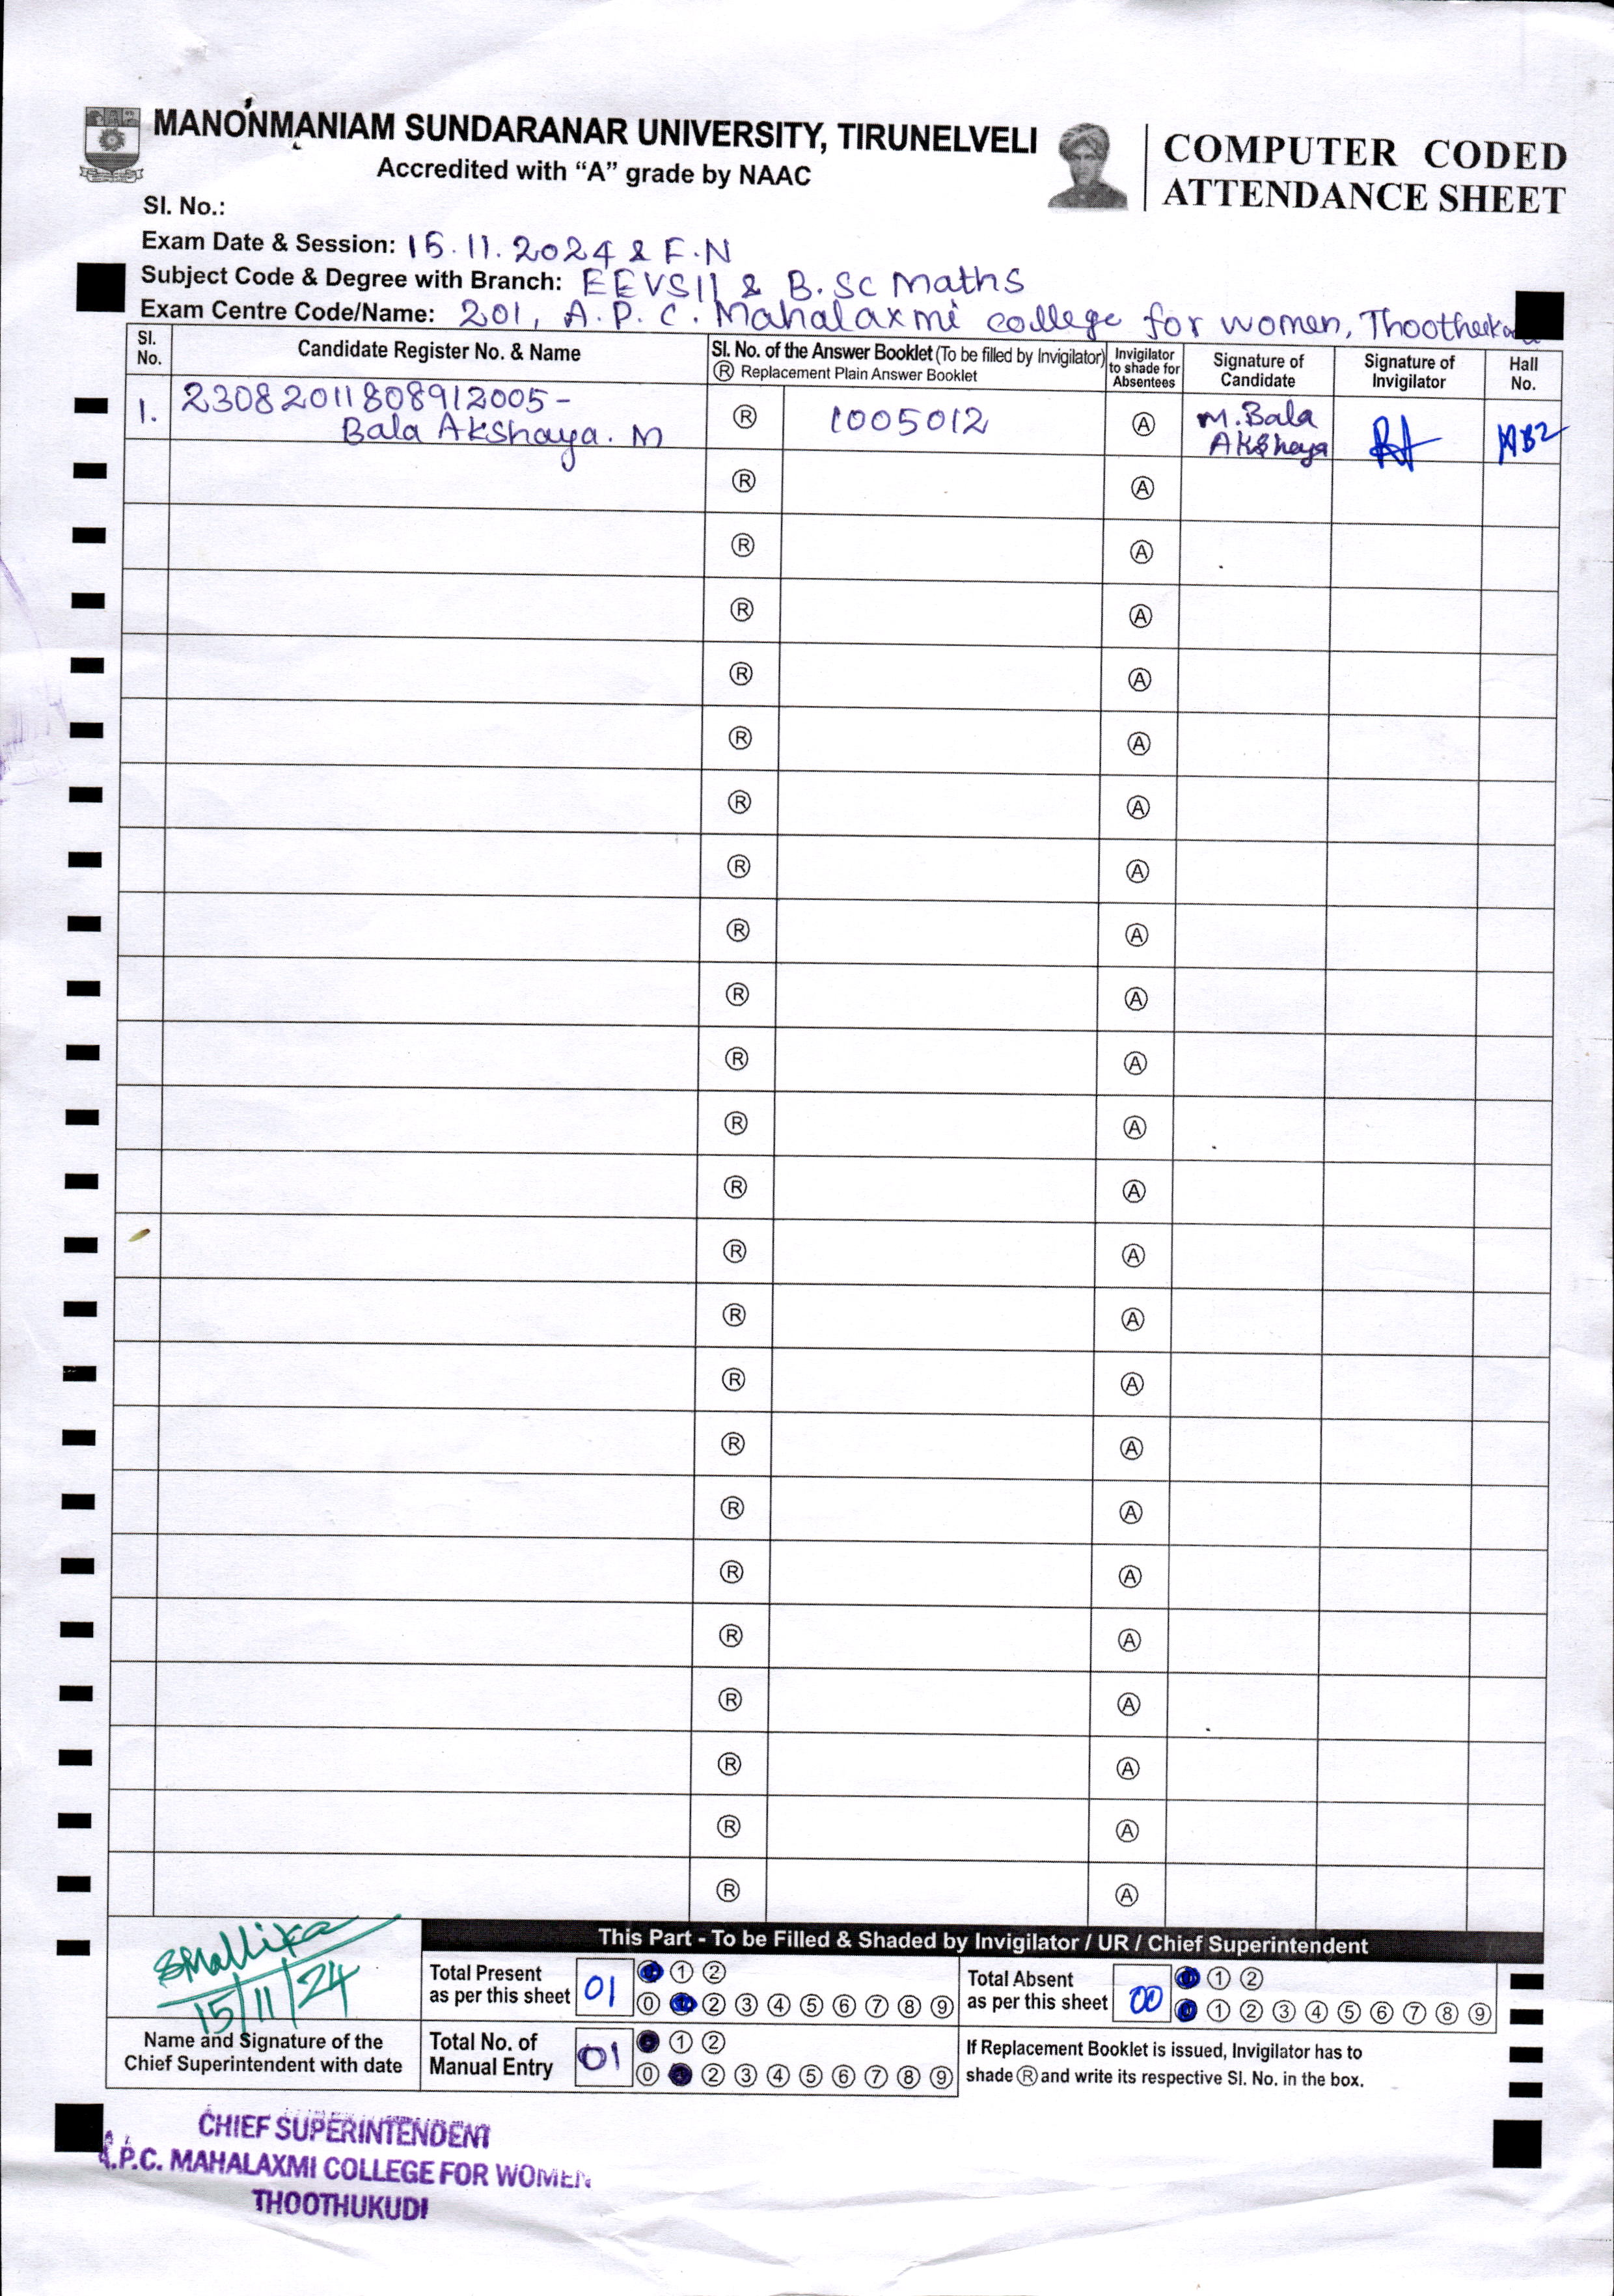 MANONMANIAM SUNDARANAR UNIVERSITY, TIRUNELVELI
Accredited with “A” grade by NAAC
COMPUTER CODED
ATTENDANCE SHEET
Sl. No.:
Exam Date & Session: 15.11.2024 & F.N
Subject Code & Degree with Branch: EEVS11 & B.Sc Maths
Exam Centre Code/Name: 201, A.P.C. Mahalaxmi college for women,
Sl. No. Candidate Register No. & Name Sl. No. of the Answer Booklet (To be filled by Invigilator) Ⓡ Replacement Plain Answer Booklet Invigilator to shade for Absentees Signature of Candidate Signature of Invigilator Hall No.
1. 23082011808912005 - Ⓡ 1005012 Ⓐ M. Bala
Bala Akshaya. M Akshaya
Ⓡ Ⓐ
Ⓡ Ⓐ
Ⓡ Ⓐ
Ⓡ Ⓐ
Ⓡ Ⓐ
Ⓡ Ⓐ
Ⓡ Ⓐ
Ⓡ Ⓐ
Ⓡ Ⓐ
Ⓡ Ⓐ
Ⓡ Ⓐ
Ⓡ Ⓐ
Ⓡ Ⓐ
Ⓡ Ⓐ
Ⓡ Ⓐ
Ⓡ Ⓐ
Ⓡ Ⓐ
Ⓡ Ⓐ
Ⓡ Ⓐ
Ⓡ Ⓐ
Ⓡ Ⓐ
Ⓡ Ⓐ
Ⓡ Ⓐ
SMallika
15/11/24
Name and Signature of the
Chief Superintendent with date
This Part - To be Filled & Shaded by Invigilator / UR / Chief Superintendent
Total Present
as per this sheet 01
① ②
⓪ ② ③ ④ ⑤ ⑥ ⑦ ⑧ ⑨
Total Absent
as per this sheet 00
① ②
① ② ③ ④ ⑤ ⑥ ⑦ ⑧ ⑨
Total No. of
Manual Entry 01
① ②
⓪ ② ③ ④ ⑤ ⑥ ⑦ ⑧ ⑨
If Replacement Booklet is issued, Invigilator has to
shade Ⓡ and write its respective Sl. No. in the box.
CHIEF SUPERINTENDENT
A.P.C. MAHALAXMI COLLEGE FOR WOMEN
THOOTHUKUDI